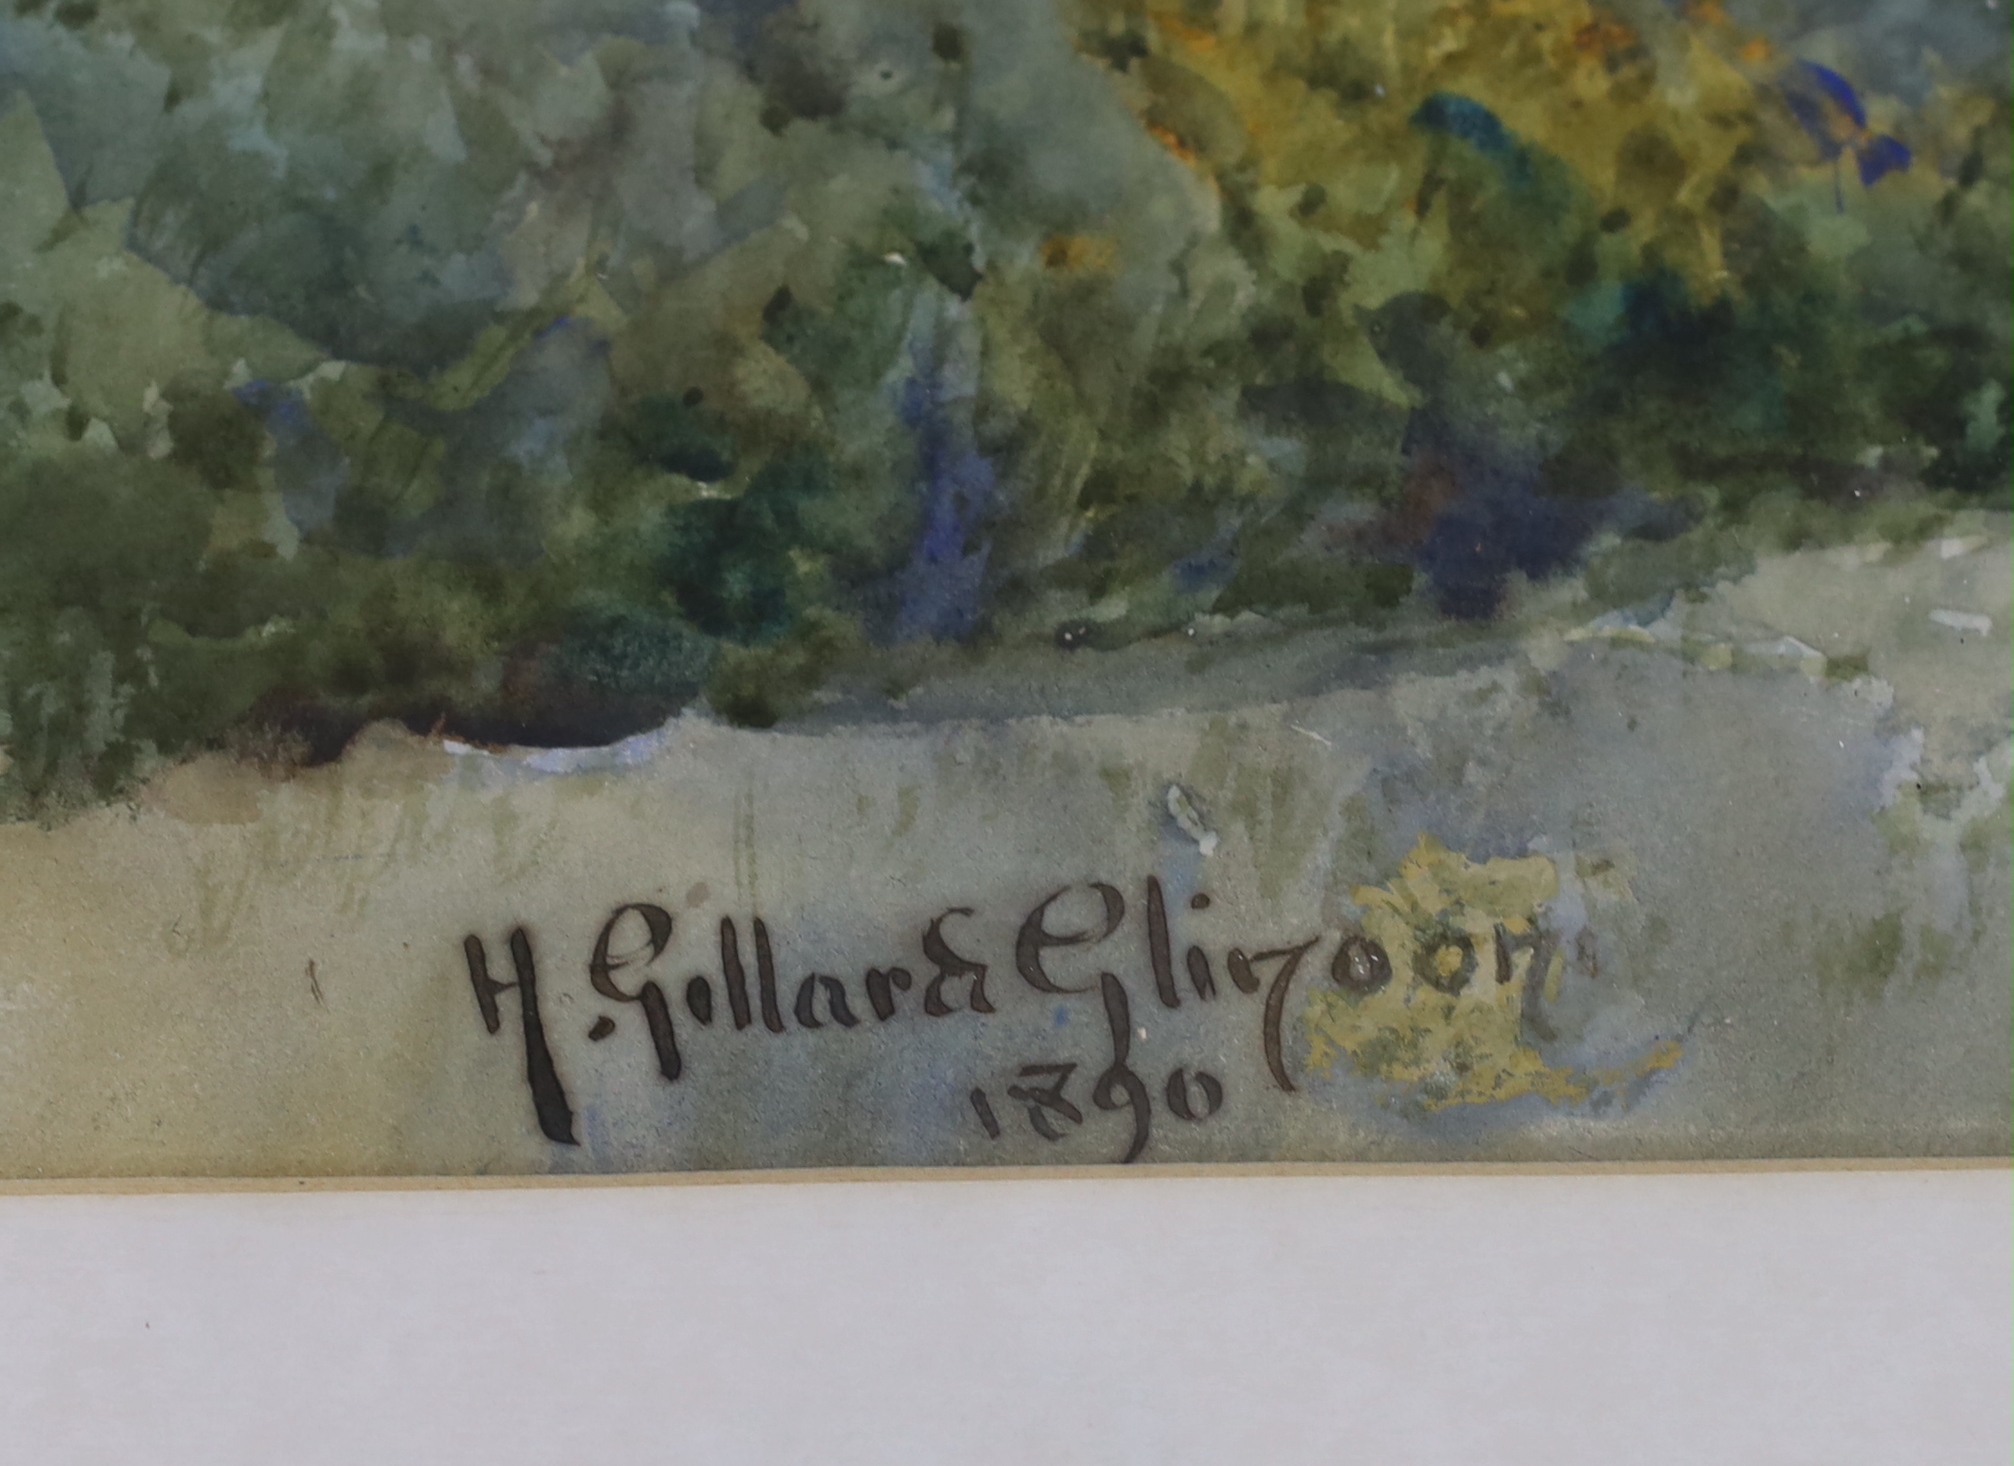 H. Gillard Glindoni
1890